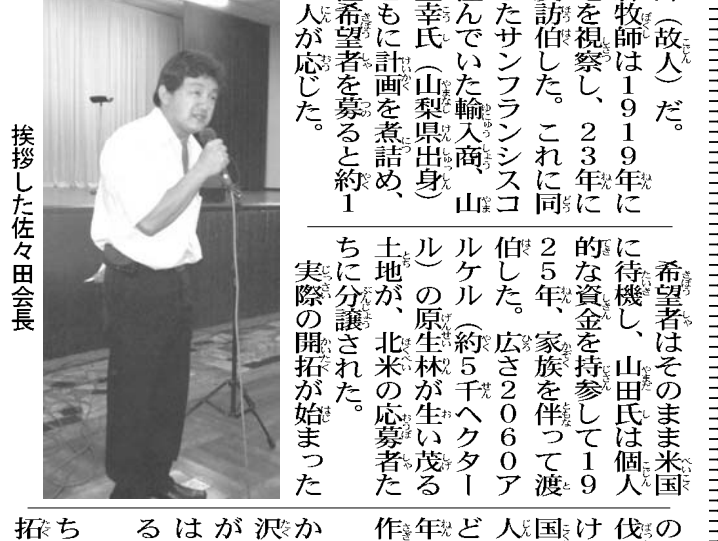 （故人）だ。
牧師は１９１９年に
を視察し、２３年に
訪伯した。これに同
たサンフランシスコ
んでいた輸入商、山
幸氏（山梨県出身）
もに計画を煮詰め、
希望者を募ると約１
人が応じた。
挨拶した佐々田会長
希望者はそのまま米国
に待機し、山田氏は個人
的な資金を持参して１９
２５年、家族を伴って渡
伯した。広さ２０６０ア
ルケル（約５千ヘクター
ル）の原生林が生い茂る
土地が、北米の応募者た
ちに分譲された。
実際の開拓が始まった
の
伐
け
国
人
ど
年
作
か
沢
が
は
る
ち
拓